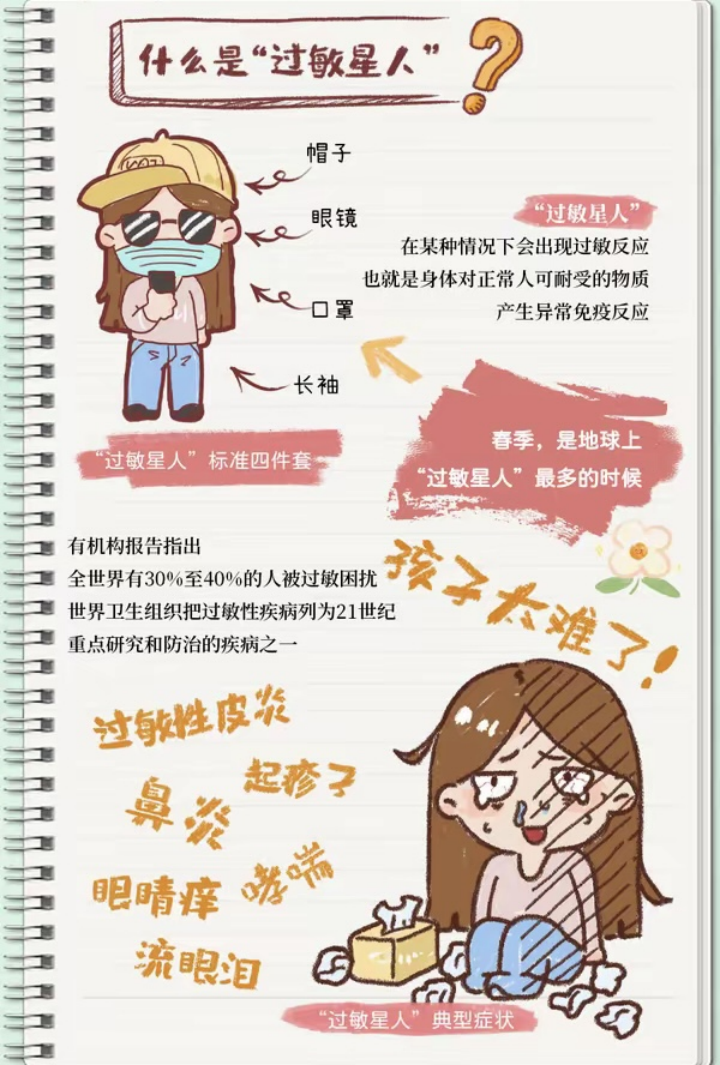 什么是“过敏星人”?
帽子
眼镜
口罩
长袖
“过敏星人”标准四件套
“过敏星人”
在某种情况下会出现过敏反应
也就是身体对正常人可耐受的物质
产生异常免疫反应
春季，是地球上
“过敏星人”最多的时候
有机构报告指出
全世界有30%至40%的人被过敏困扰
世界卫生组织把过敏性疾病列为21世纪
重点研究和防治的疾病之一
孩子太难了!
过敏性皮炎
起疹子
鼻炎
哮喘
眼睛痒
流眼泪
“过敏星人”典型症状